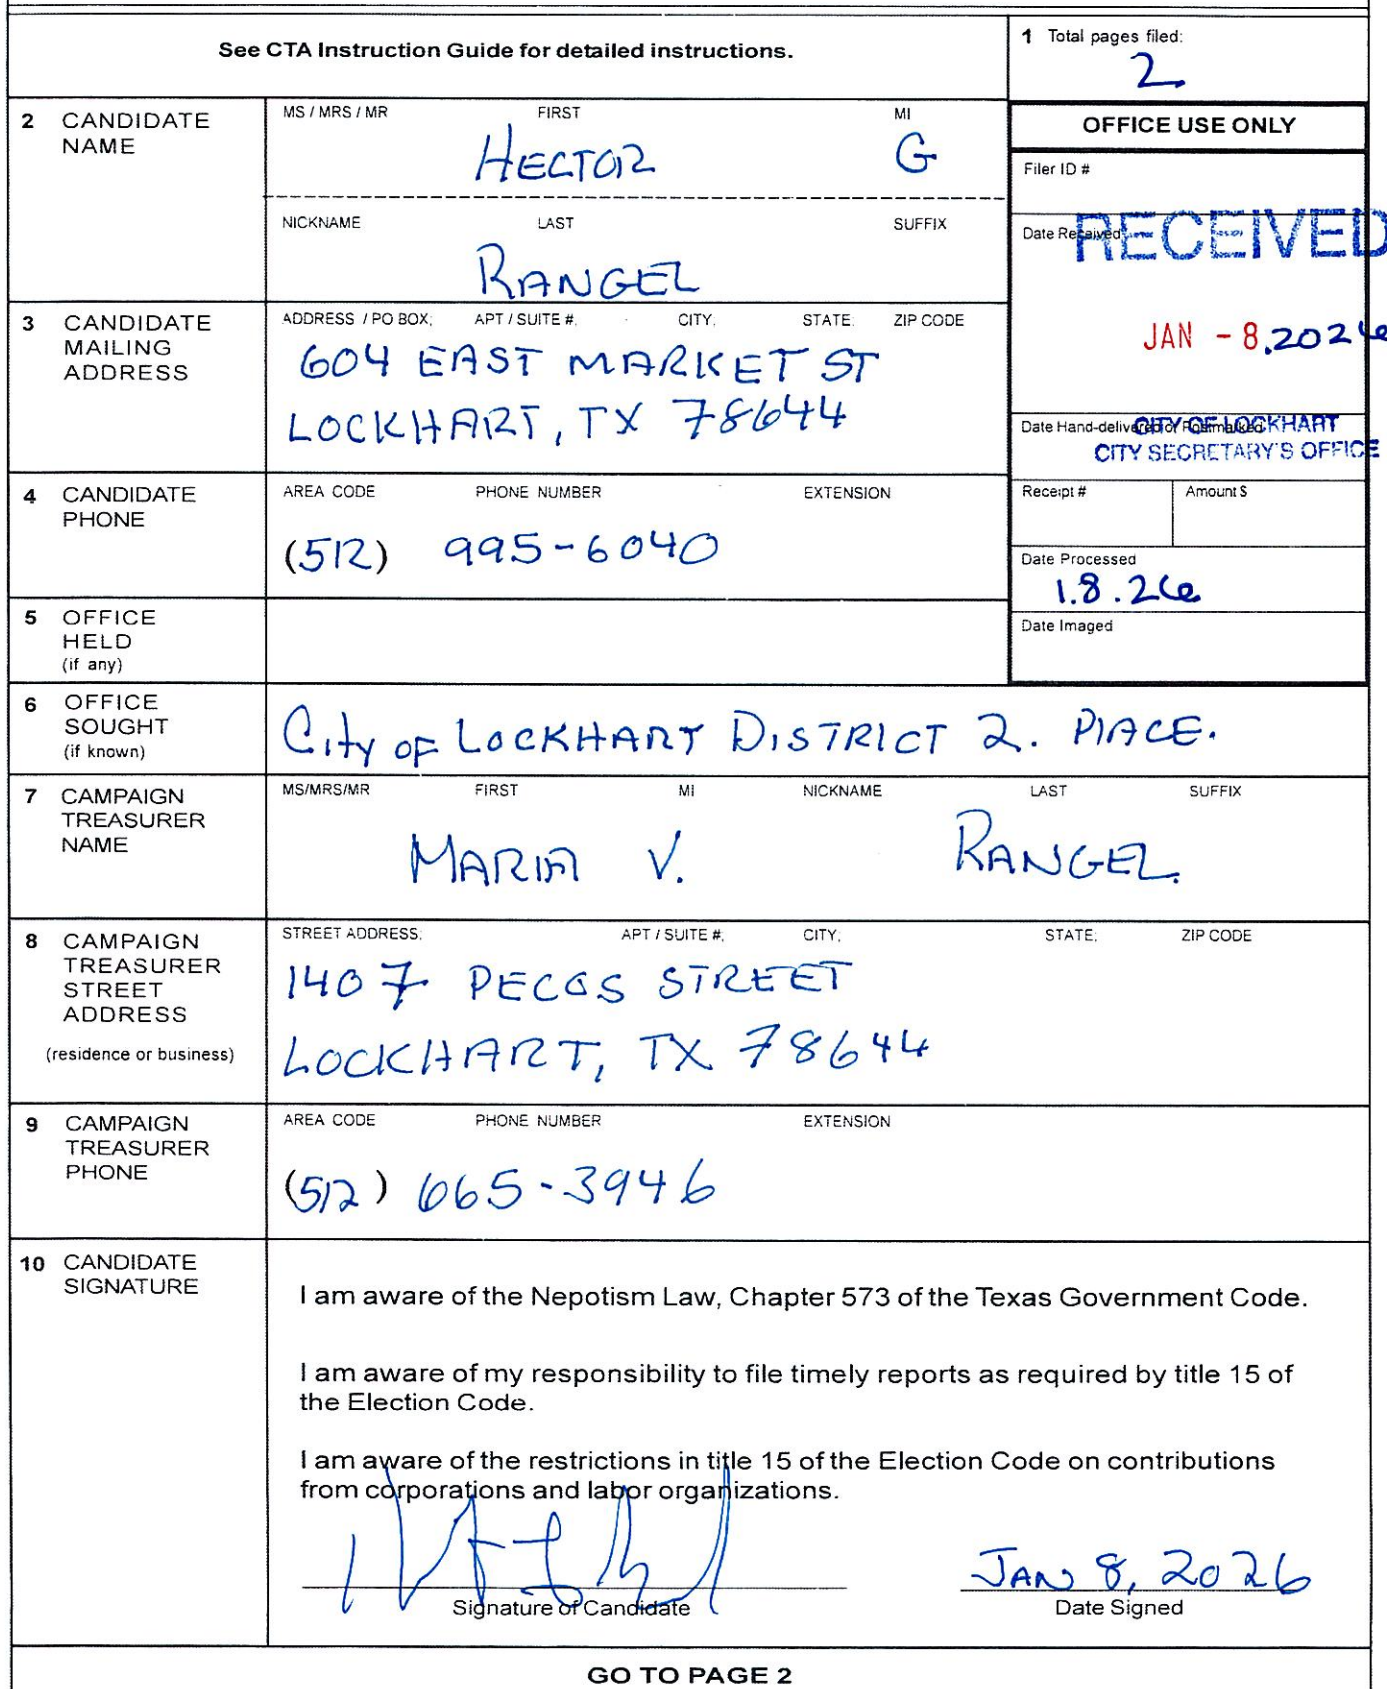 See CTA Instruction Guide for detailed instructions.
1 Total pages filed:
2
2 CANDIDATE NAME
MS / MRS / MR FIRST MI
HECTOR G
NICKNAME LAST SUFFIX
RANGEL
OFFICE USE ONLY
Filer ID #
Date Received
RECEIVED
JAN - 8, 2026
3 CANDIDATE MAILING ADDRESS
ADDRESS / PO BOX; APT / SUITE #; CITY; STATE; ZIP CODE
604 EAST MARKET ST
LOCKHART, TX 78644
Date Hand-delivered or Postmarked
CITY OF LOCKHART
CITY SECRETARY'S OFFICE
4 CANDIDATE PHONE
AREA CODE PHONE NUMBER EXTENSION
(512) 995-6040
Receipt # Amount $
Date Processed
1.8.26
Date Imaged
5 OFFICE HELD (if any)
6 OFFICE SOUGHT (if known)
City OF LOCKHART DISTRICT 2. PLACE.
7 CAMPAIGN TREASURER NAME
MS/MRS/MR FIRST MI NICKNAME LAST SUFFIX
MARIA V. RANGEL.
8 CAMPAIGN TREASURER STREET ADDRESS (residence or business)
STREET ADDRESS; APT / SUITE #; CITY; STATE; ZIP CODE
1407 PECOS STREET
LOCKHART, TX 78644
9 CAMPAIGN TREASURER PHONE
AREA CODE PHONE NUMBER EXTENSION
(512) 665-3946
10 CANDIDATE SIGNATURE
I am aware of the Nepotism Law, Chapter 573 of the Texas Government Code.
I am aware of my responsibility to file timely reports as required by title 15 of
the Election Code.
I am aware of the restrictions in title 15 of the Election Code on contributions
from corporations and labor organizations.
JAN 8, 2026
Signature of Candidate Date Signed
GO TO PAGE 2